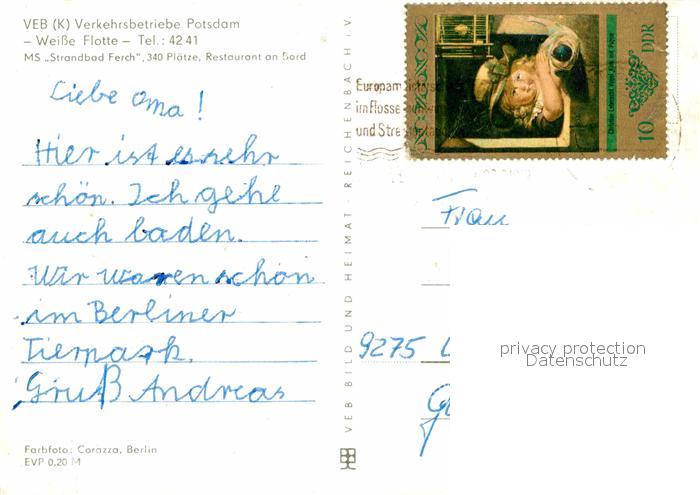 VEB (K) Verkehrsbetriebe Potsdam
– Weiße Flotte – Tel.: 42 41
MS „Strandbad Ferch", 340 Plätze, Restaurant an Bord
Liebe Oma!
Hier ist es sehr
schön. Ich gehe
auch baden.
Wir waren schon
im Berliner
Tierpark.
Gruß Andreas
Farbfoto: Corazza, Berlin
EVP 0,20 M
VEB BILD UND HEIMAT · REICHENBACH i. V.
im Flosse
und Stre
10 DDR
Frau
9275
privacy protection
Datenschutz